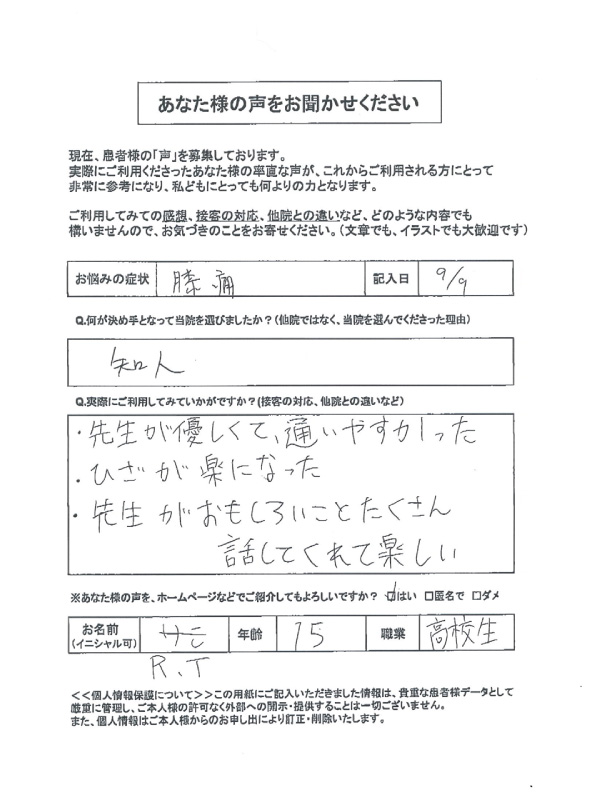 あなた様の声をお聞かせください
現在、患者様の「声」を募集しております。
実際にご利用くださったあなた様の率直な声が、これからご利用される方にとって
非常に参考になり、私どもにとっても何よりの力となります。
ご利用してみての感想、接客の対応、他院との違いなど、どのような内容でも
構いませんので、お気づきのことをお寄せください。(文章でも、イラストでも大歓迎です)
お悩みの症状 膝痛 記入日 9/9
Q.何が決め手となって当院を選びましたか?(他院ではなく、当院を選んでくださった理由)
知人
Q.実際にご利用してみていかがですか?(接客の対応、他院との違いなど)
・先生が優しくて、通いやすかった
・ひざが楽になった
・先生がおもしろいことたくさん
話してくれて楽しい
※あなた様の声を、ホームページなどでご紹介してもよろしいですか? ☑はい □匿名で □ダメ
お名前 年齢 15 職業 高校生
(イニシャル可)
R.T
<<個人情報保護について>>この用紙にご記入いただきました情報は、貴重な患者様データとして
厳重に管理し、ご本人様の許可なく外部への開示・提供することは一切ございません。
また、個人情報はご本人様からのお申し出により訂正・削除いたします。